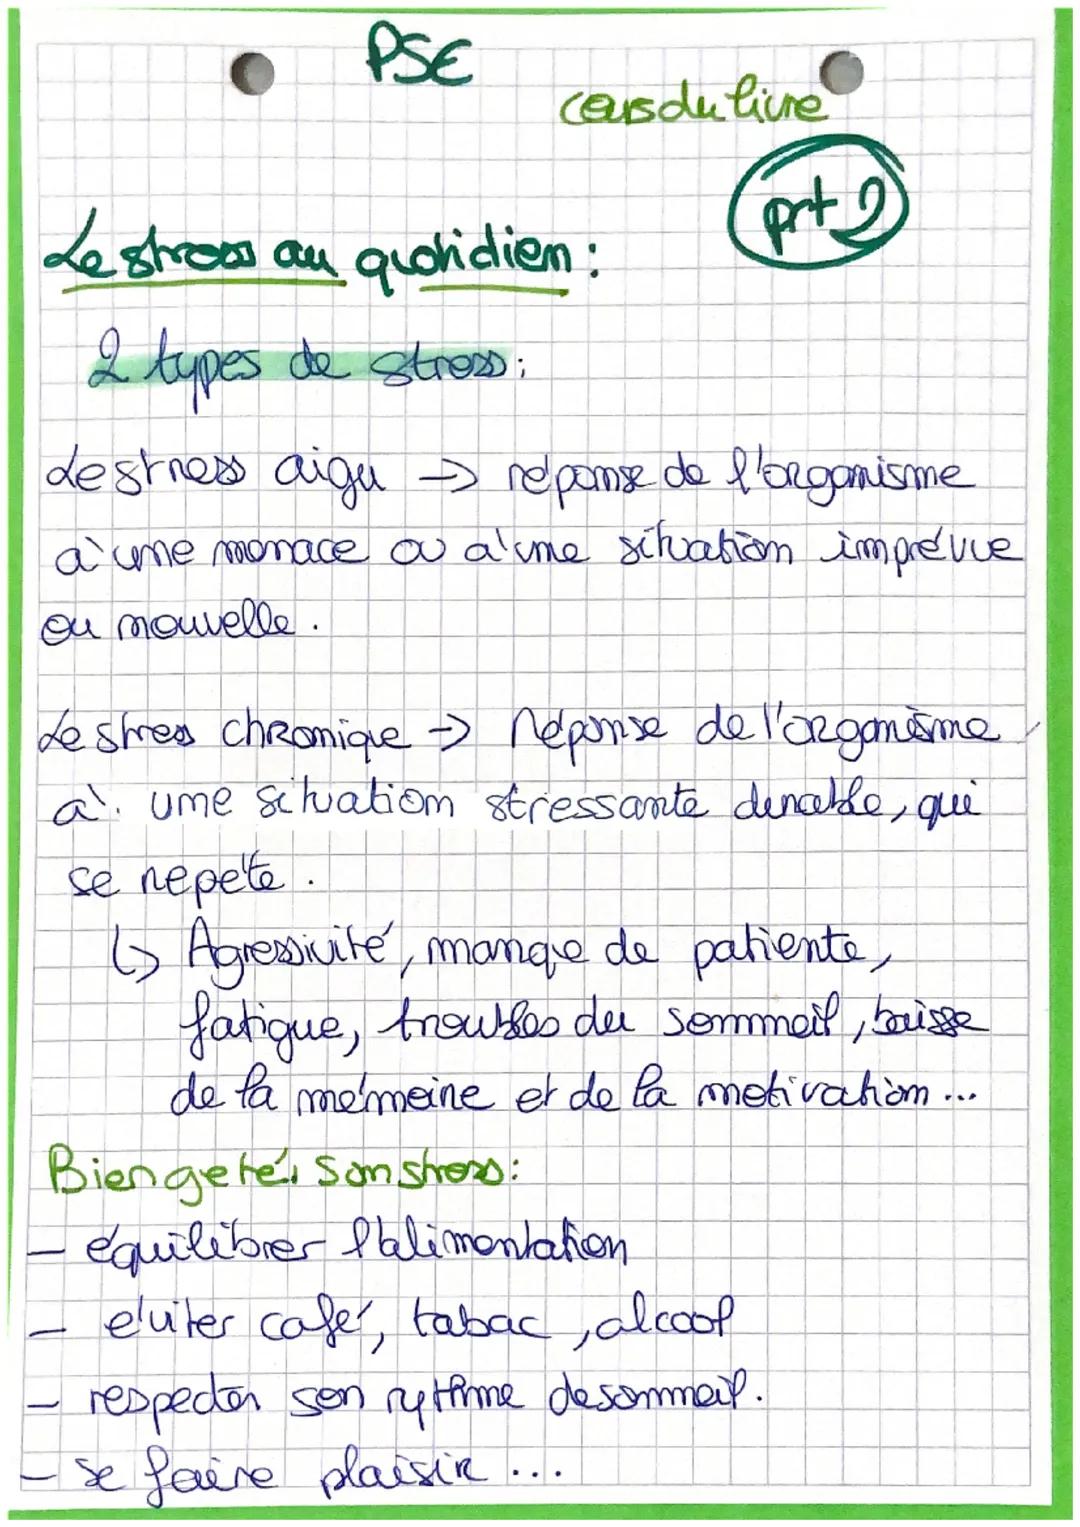 PSE
cours du livre
prt 2
Le stress au quotidien :
2 types de stress :
Le stress aigu → réponse de l'organisme
à une menace ou à une situation imprévue
ou nouvelle .
Le stress chronique → réponse de l'organisme
à une situation stressante durable, qui
se répète .
↳ Agressivité, manque de patiente,
fatigue, troubles du sommeil, baisse
de la mémoire et de la motivation ...
Bien geré son stress :
- équilibrer l'alimentation
- éviter café, tabac, alcool
- respecter son rythme de sommeil.
- se faire plaisir ...